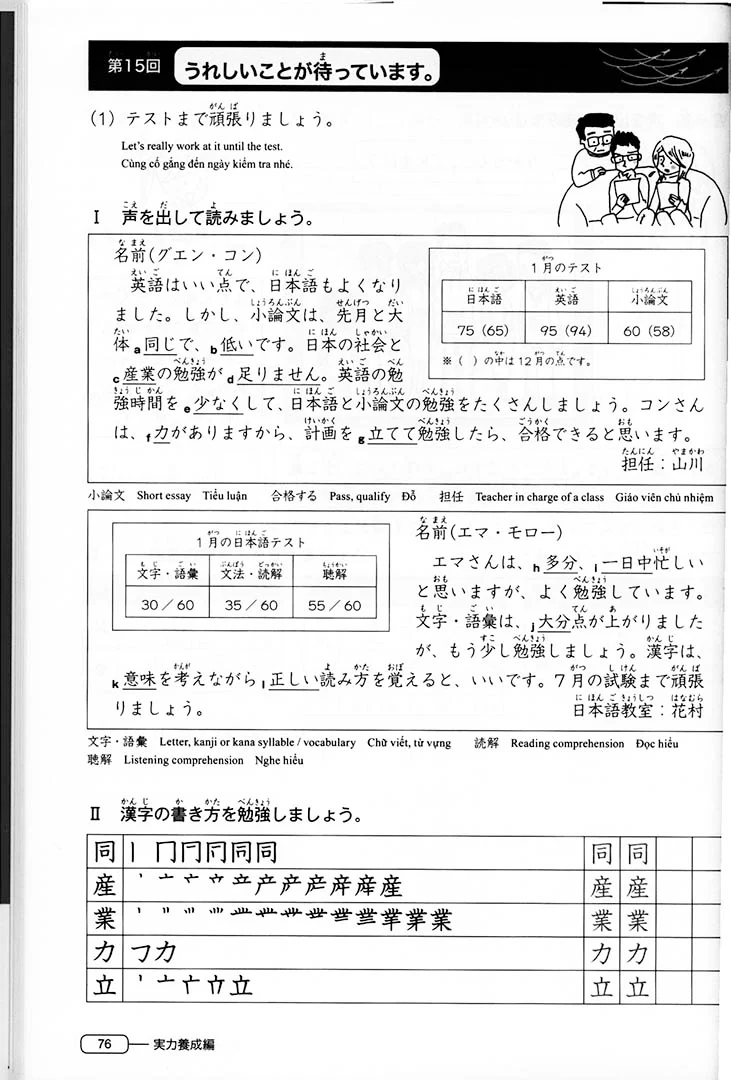 第15回 うれしいことが待っています。
(1) テストまで頑張りましょう。
Let's really work at it until the test.
Cùng cố gắng đến ngày kiểm tra nhé.
Ⅰ 声を出して読みましょう。
名前(グエン・コン)
英語はいい点で、日本語もよくなり
ました。しかし、小論文は、先月と大
体a同じで、b低いです。日本の社会と
c産業の勉強がd足りません。英語の勉
強時間をe少なくして、日本語と小論文の勉強をたくさんしましょう。コンさん
は、f力がありますから、計画をg立てて勉強したら、合格できると思います。
担任：山川
1月のテスト
日本語 英語 小論文
75 (65) 95 (94) 60 (58)
※( )の中は12月の点です。
小論文 Short essay Tiểu luận 合格する Pass, qualify Đỗ 担任 Teacher in charge of a class Giáo viên chủ nhiệm
1月の日本語テスト
文字・語彙 文法・読解 聴解
30／60 35／60 55／60
名前(エマ・モロー)
エマさんは、h多分、i一日中忙しい
と思いますが、よく勉強しています。
文字・語彙は、j大分点が上がりました
が、もう少し勉強しましょう。漢字は、
k意味を考えながらl正しい読み方を覚えると、いいです。7月の試験まで頑張
りましょう。 日本語教室：花村
文字・語彙 Letter, kanji or kana syllable / vocabulary Chữ viết, từ vựng 読解 Reading comprehension Đọc hiểu
聴解 Listening comprehension Nghe hiểu
Ⅱ 漢字の書き方を勉強しましょう。
同 同 同 同
産 産 産 産
業 業 業 業
力 力 力 力
立 立 立 立
76 実力養成編